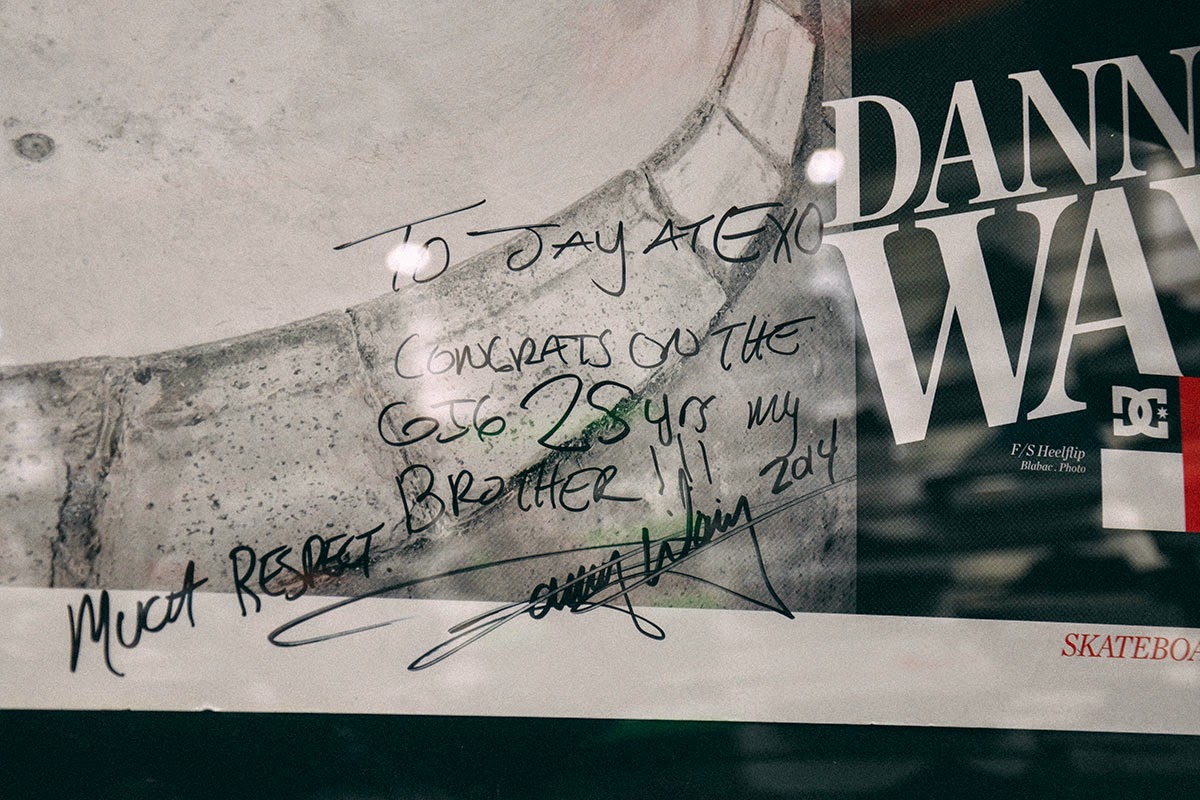 To JAY AT EXO
CONGRATS ON THE
GIG 28 yrs my
BROTHER!!! 2014
MUCH RESPECT
DANN
WA
DC
F/S Heelflip
Blabac . Photo
SKATEBOA